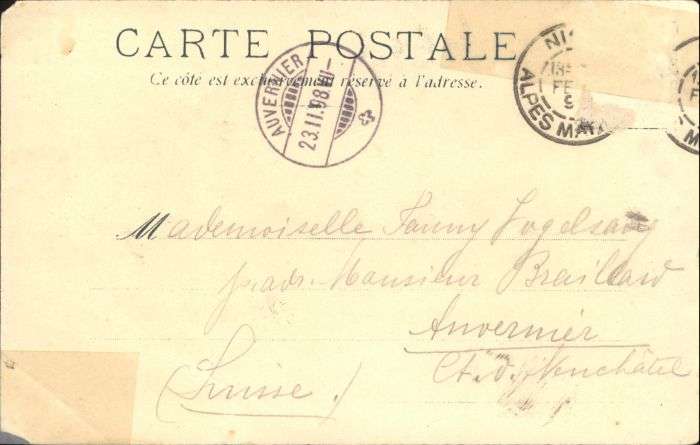 CARTE POSTALE
Ce côté est exclusivement réservé à l'adresse.
AUVERNIER
23.II.98.VII-
NI
FE
9
ALPES MA
Mademoiselle Fanny Vogelsang
p. adr. Monsieur Braillard
Auvernier
Ct. d. Neuchâtel
(Suisse.)